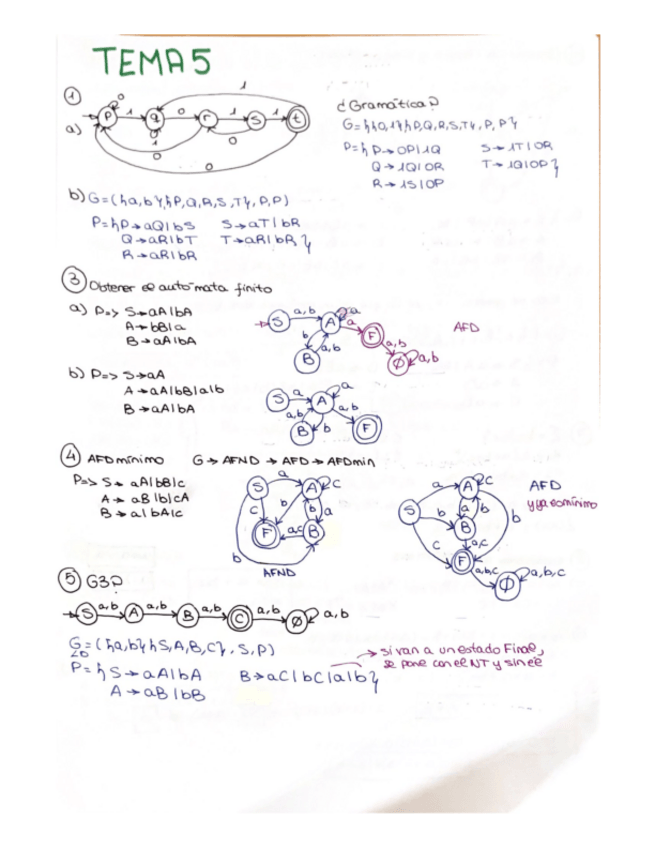 TEMA5
①
a)
0 1 0 1 1 1 0 0 0 0
P q r s t
¿Gramática?
G={{0,1},{P,Q,R,S,T}, P, P}
P={P→0P|1Q S→1T|0R
Q→1Q|0R T→1Q|0P}
R→1S|0P
b) G=({a,b},{P,Q,R,S,T}, P, P)
P={P→aQ|bS S→aT|bR
Q→aR|bT T→aR|bR}
R→aR|bR
③ Obtener el autómata finito
a) P=> S→aA|bA
A→bB|a
B→aA|bA
S a,b A a a F a,b ∅ a,b
b a,b B
AFD
b) P=> S→aA
A→aA|bB|a|b
B→aA|bA
S a A a a,b F
a,b b B
④ AFD mínimo G→AFND→AFD→AFDmin
P=> S→aA|bB|c
A→aB|b|cA
B→a|bA|c
S a A c
c b b a
F a,c B
b
AFND
S a A c
b a b b
B
c a,c
F a,b,c ∅ a,b,c
AFD
y ya es mínimo
⑤ G3?
S a,b A a,b B a,b C a,b ∅ a,b
G=({a,b},{S,A,B,C}, S, P)
P={S→aA|bA B→aC|bC|a|b}
A→aB|bB
→ si van a un estado Final,
se pone con el NT y sin él